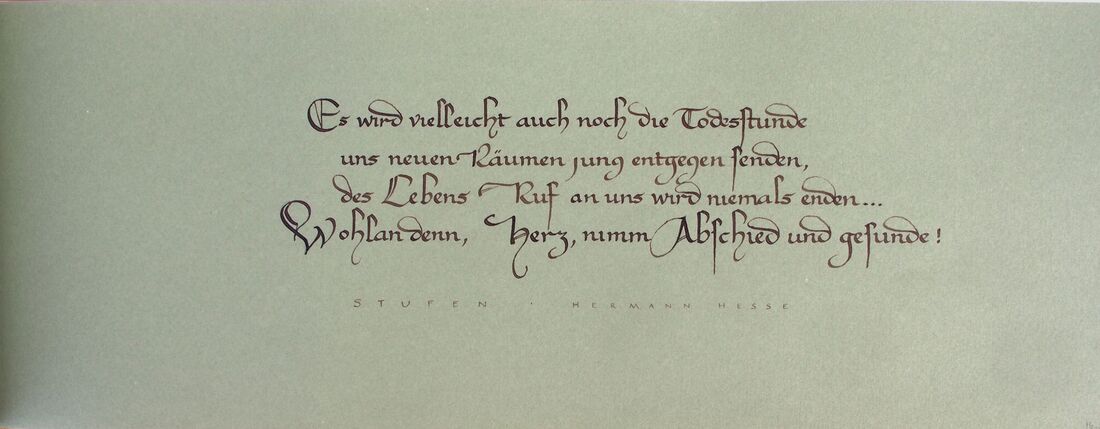 Es wird vielleicht auch noch die Todesstunde
uns neuen Räumen jung entgegen senden,
des Lebens Ruf an uns wird niemals enden...
Wohlan denn, Herz, nimm Abschied und gesunde!
STUFEN · HERMANN HESSE